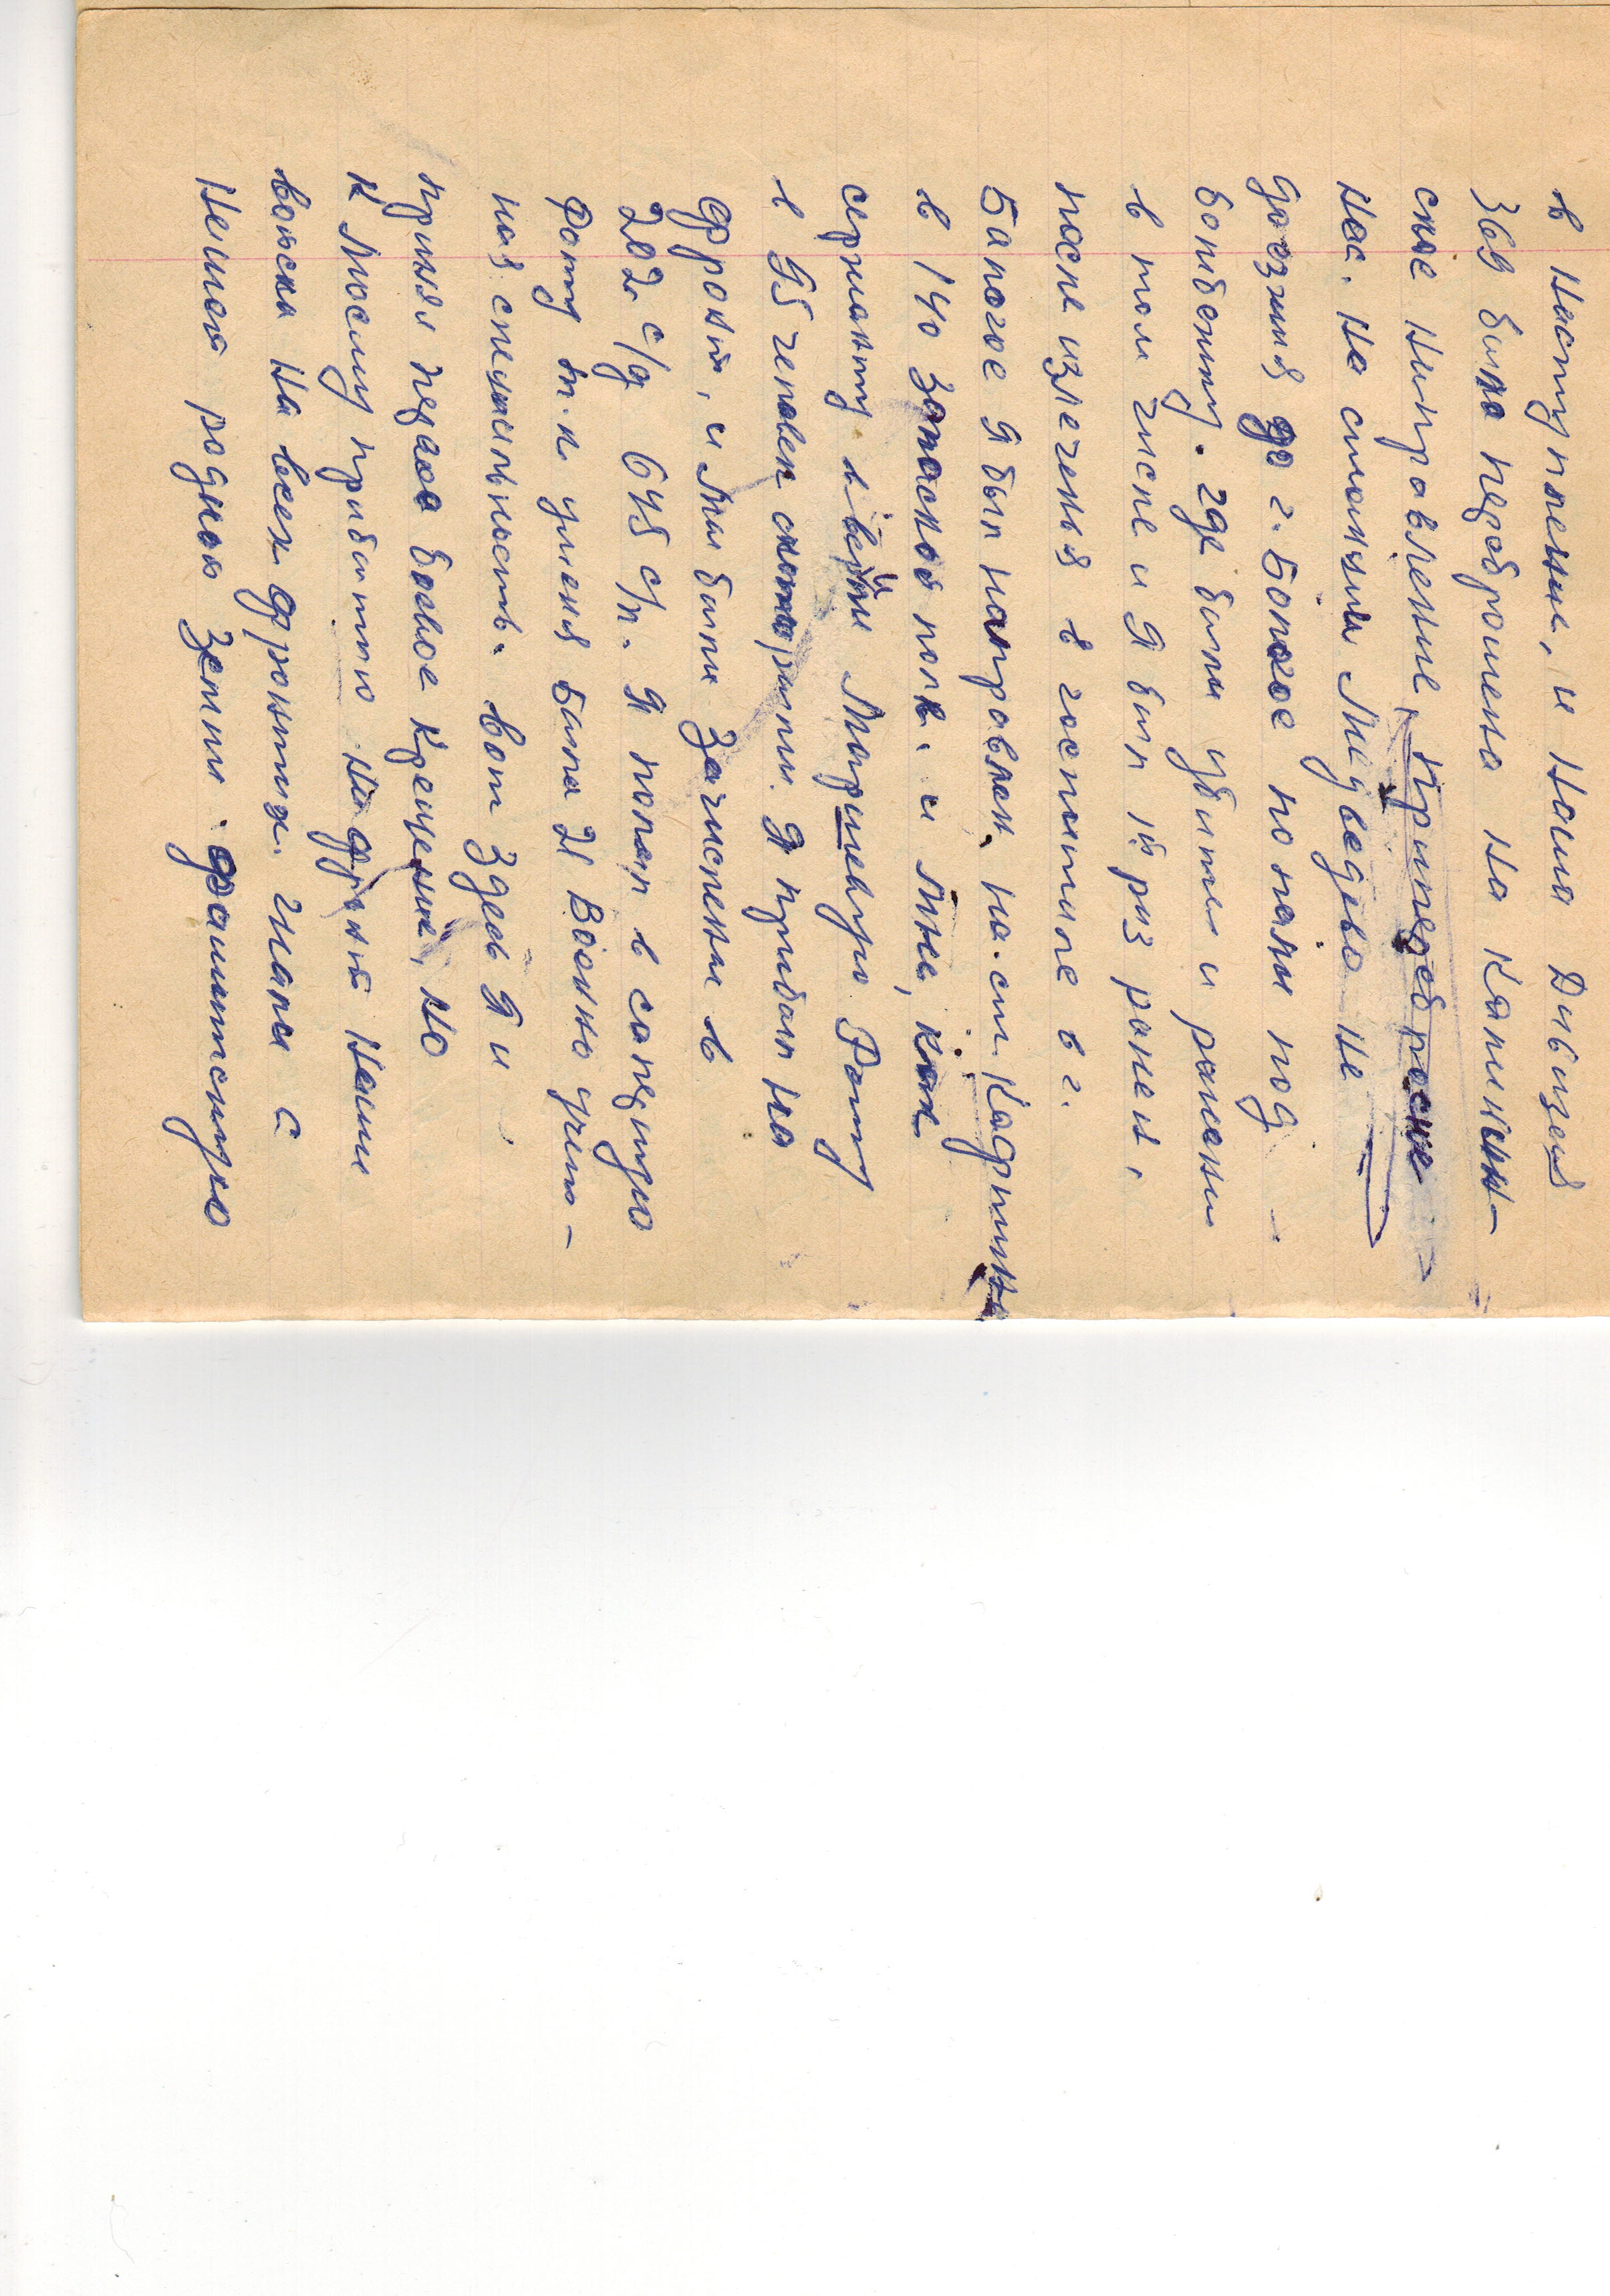 в наступление, и Наша Дивизия
369 была переброшена на Калинин-
ское Направление, Припереброске
Нас. На станции Медведево не
доезжия до г. Бологое попали под
бомбежку. где были убиты и ранены
в том числе и Я был 1й раз ранен,
после излечения в госпитале в г.
Бологое Я был направлен. на.ст. Кадринка
в 140 запасной полк. и мне, как
сержанту ввели Маршевую Роту
в 95 человек скоторыми. Я прибыл на
фронт, и Мы были Зачислены в
202 с/д 645 с/п. Я попал в саперную
Роту т.к уменя Была 21 Военно учет-
ная специальность. Вот здесь Я и
принял перво боевое крещение, но
К Моему прибытию На фронт Наши
войска На всех фронтах. Гнали с
Нашей родной Земли. фашистскую